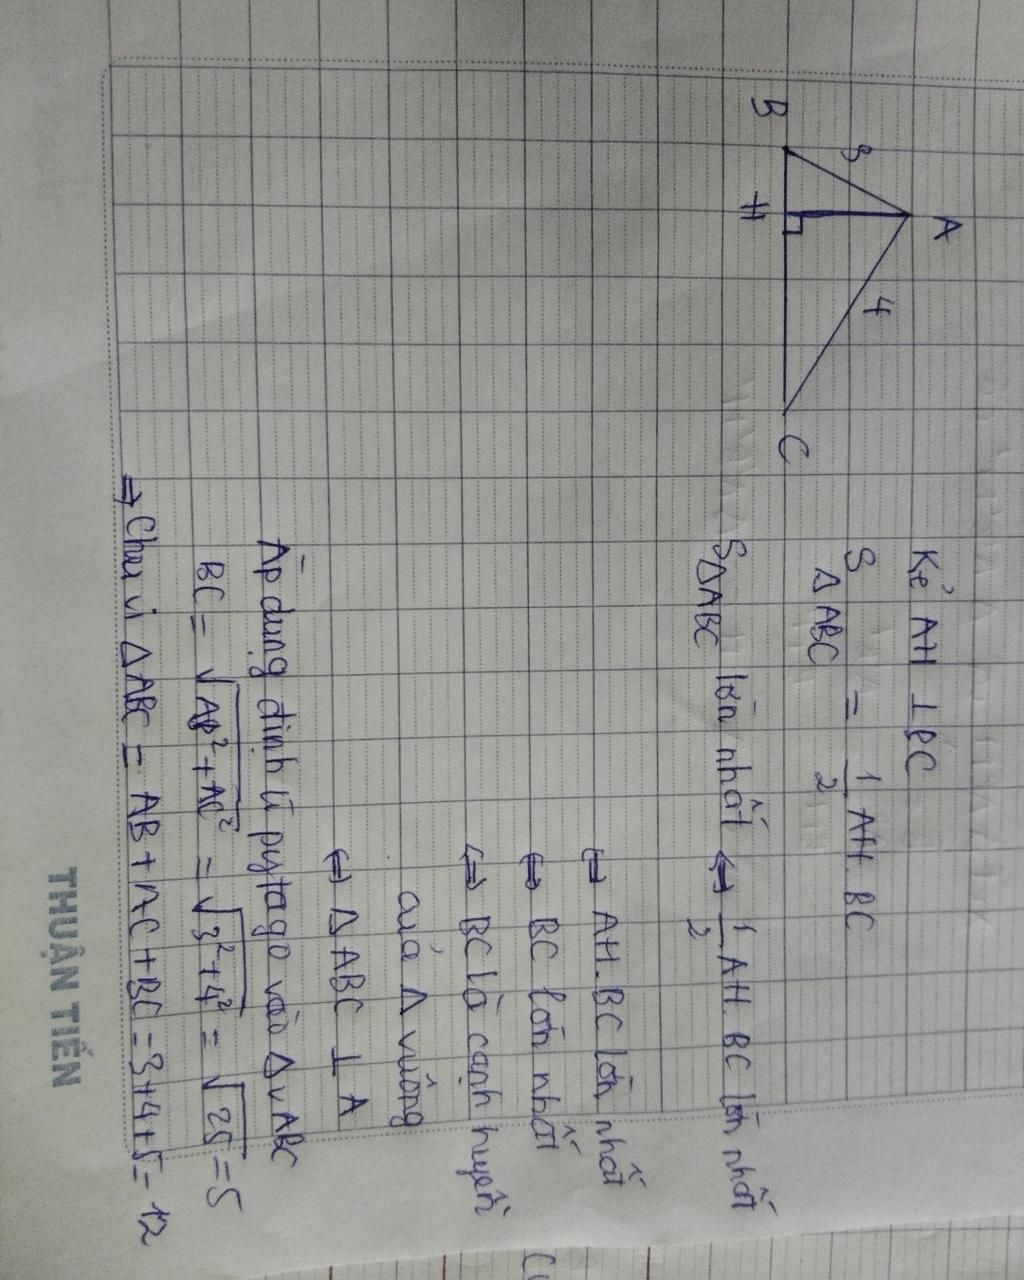 A
3
4
B
H
C
Kẻ AH ⊥ BC
S ΔABC = 1/2 AH. BC
SΔABC lớn nhất ⇔ 1/2 AH. BC lớn nhất
⇔ AH.BC lớn nhất
⇔ BC lớn nhất
⇔ BC là cạnh huyền
của Δ vuông
⇔ Δ ABC ⊥ A
Áp dụng định lí pytago vào ΔvABC
BC = √AB²+AC² = √3²+4² = √25 = 5
⇒ Chu vi ΔABC = AB+AC+BC = 3+4+5 = 12
THUẬN TIẾN